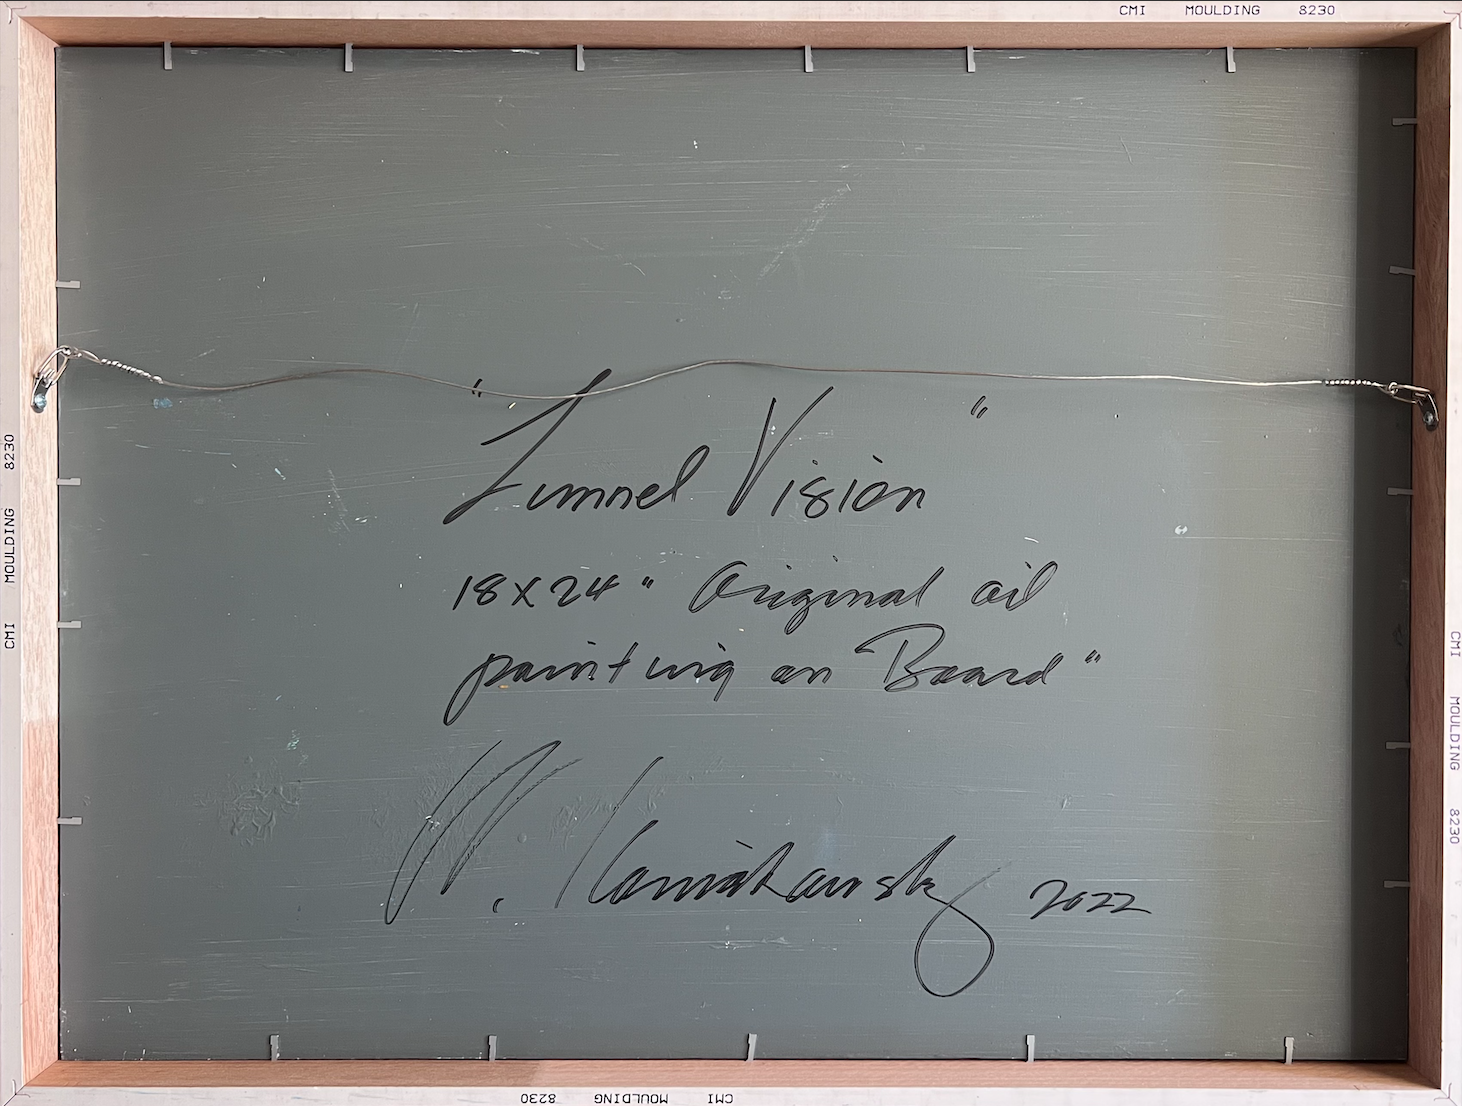 CMI MOULDING 8230
"Tunnel Vision"
18 x 24" Original oil
painting on "Board"
2022
CMI MOULDING 8230
CMI MOULDING 8230
CMI MOULDING 8230